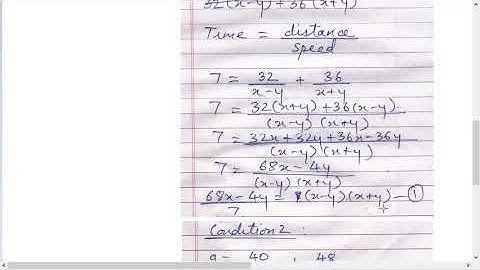 32(x-y)+36(x+y)
Time = distance/speed
7 = 32/x-y + 36/x+y
7 = 32(x+y)+36(x-y)/(x-y)(x+y)
7 = 32x+32y+36x-36y/(x-y)(x+y)
7 = 68x-4y/(x-y)(x+y)
68x-4y/7 = (x-y)(x+y) - ①
Condition 2 :
9 = 40 , 48